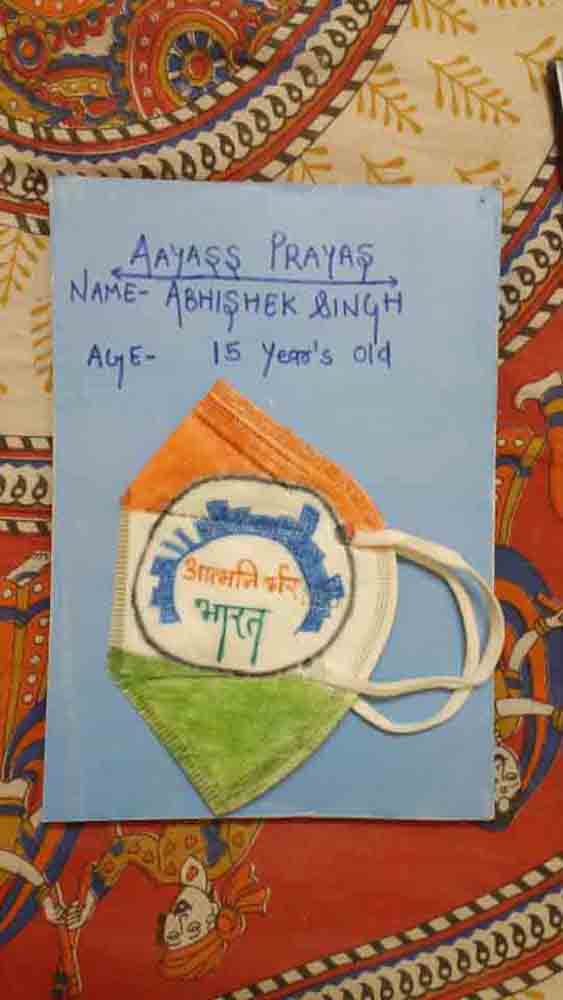 AAYASS PRAYAS
NAME- ABHISHEK SINGH
AGE- 15 Year's old
आत्मनिर्भर
भारत